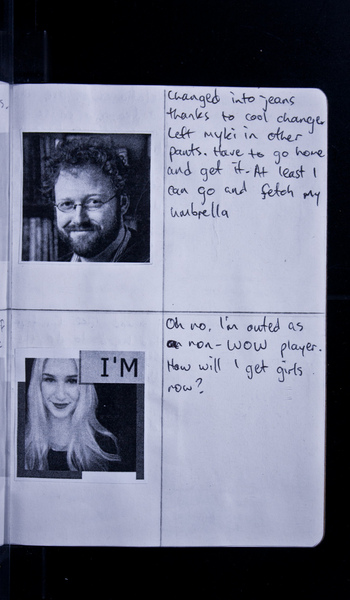 Changed into jeans
thanks to cool changer
Left Myki in other
pants. Have to go home
and get it. At least I
can go and fetch my
umbrella
I'M
Oh no, I'm outed as
non-WOW player.
How will I get girls
now?